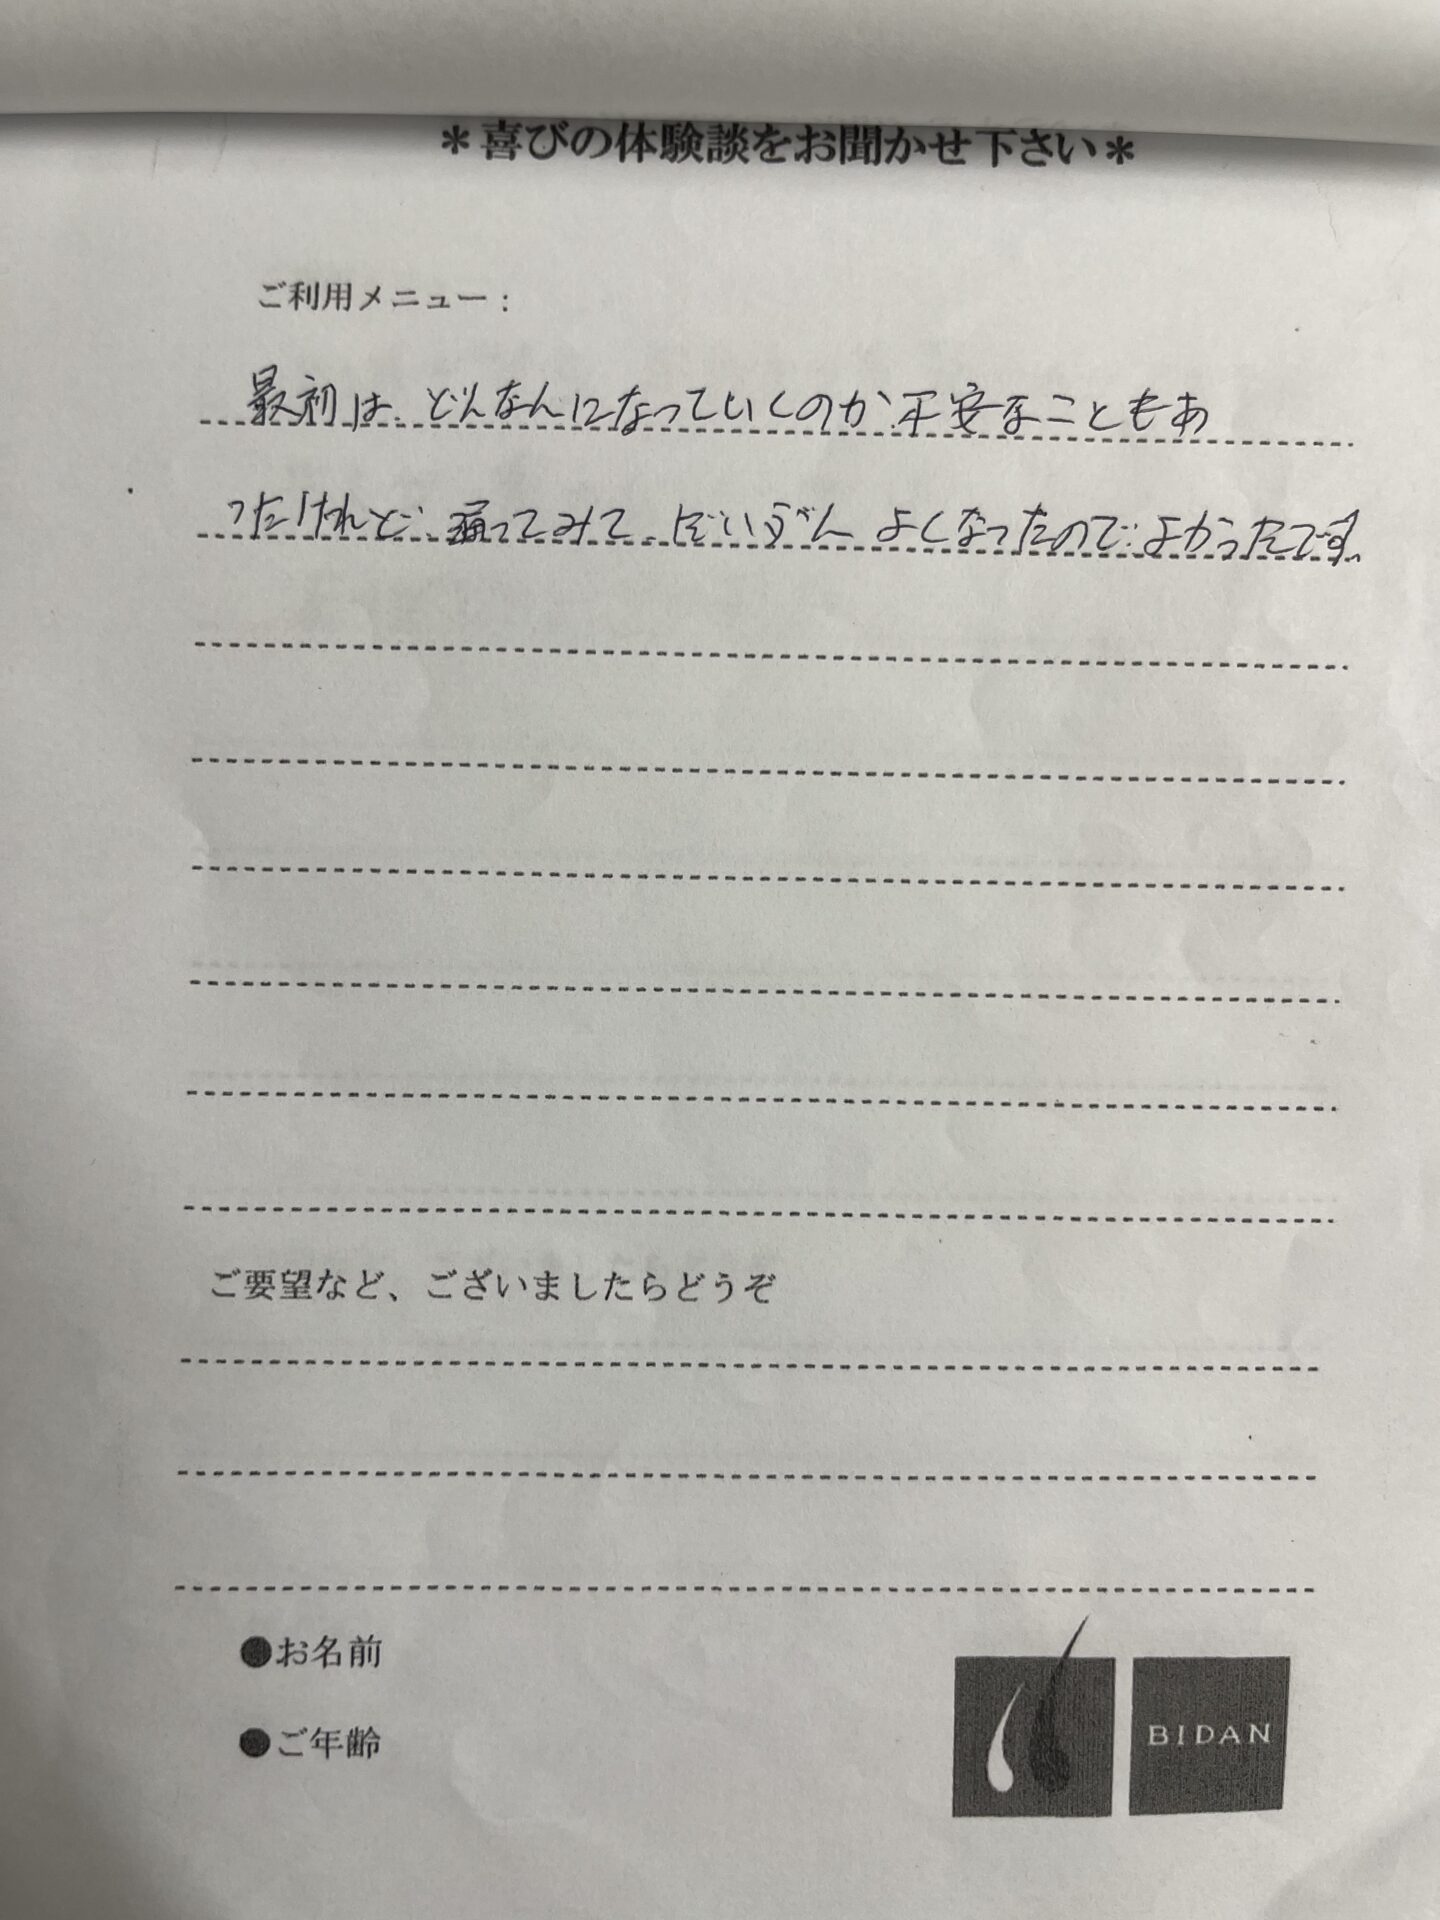 ＊喜びの体験談をお聞かせ下さい＊
ご利用メニュー：
最初は、どんなんになっていくのか、不安なこともあ
ったけれど、通ってみて、だいぶんよくなったので、よかったです。
ご要望など、ございましたらどうぞ
●お名前
●ご年齢
BIDAN